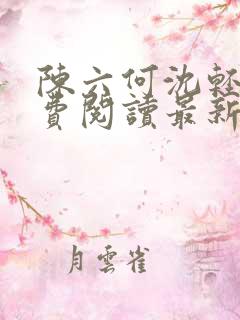 陳六何沈輕
費閱讀最新
月雲雀